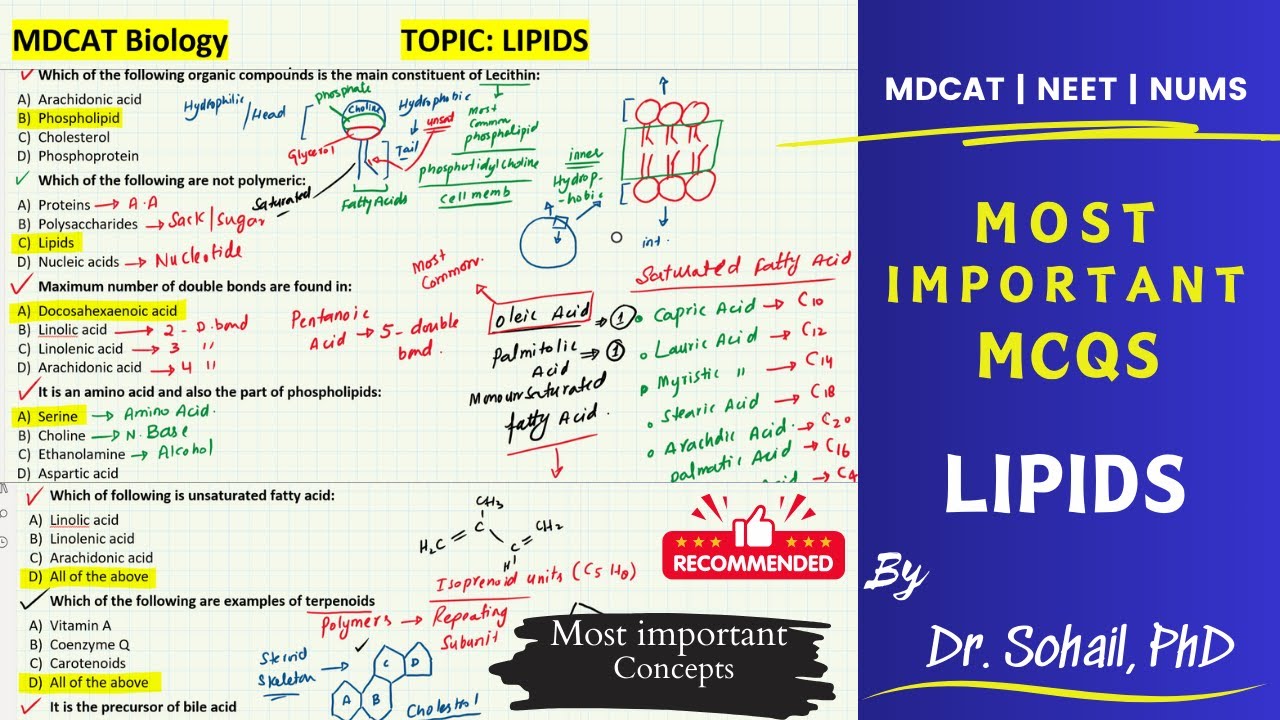 MDCAT Biology
TOPIC: LIPIDS
✓ Which of the following organic compounds is the main constituent of Lecithin:
A) Arachidonic acid
B) Phospholipid
C) Cholesterol
D) Phosphoprotein
✓ Which of the following are not polymeric:
A) Proteins → A.A
B) Polysaccharides → Sack/sugar
C) Lipids
D) Nucleic acids → Nucleotide
✓ Maximum number of double bonds are found in:
A) Docosahexaenoic acid
B) Linolic acid → 2 - D.bond
C) Linolenic acid → 3 "
D) Arachidonic acid → 4 "
✓ It is an amino acid and also the part of phospholipids:
A) Serine → Amino Acid.
B) Choline → N. Base
C) Ethanolamine → Alcohol
D) Aspartic acid
Hydrophilic / Head
phosphate
Choline
Glycerol
Hydrophobic
Tail
unsat
Saturated
Fatty Acids
most
Common
phospholipid
phosphotidylcholine
cell memb
inner
Hydrop-
hobic
int.
Pentanoic
Acid → 5 - double
bond.
Most
Common.
oleic Acid ⇒ 1
Palmitolic ⇒ 1
Acid
Monounsaturated
fatty Acid.
Saturated Fatty Acid
Capric Acid → C10
Lauric Acid → C12
Myristic " → C14
Stearic Acid → C18
Arachdic Acid. → C20
Palmatic Acid → C16
→ C4
✓ Which of following is unsaturated fatty acid:
A) Linolic acid
B) Linolenic acid
C) Arachidonic acid
D) All of the above
✓ Which of the following are examples of terpenoids
A) Vitamin A
B) Coenzyme Q
C) Carotenoids
D) All of the above
✓ It is the precursor of bile acid
CH3
C
H2C
CH2
C
H
Isoprenoid units (C5 H8)
Polymers → Repeating
Subunit
Steroid
Skeleton
A B C D
Cholestrol
RECOMMENDED
Most important
Concepts
MDCAT | NEET | NUMS
MOST
IMPORTANT
MCQS
LIPIDS
By
Dr. Sohail, PhD